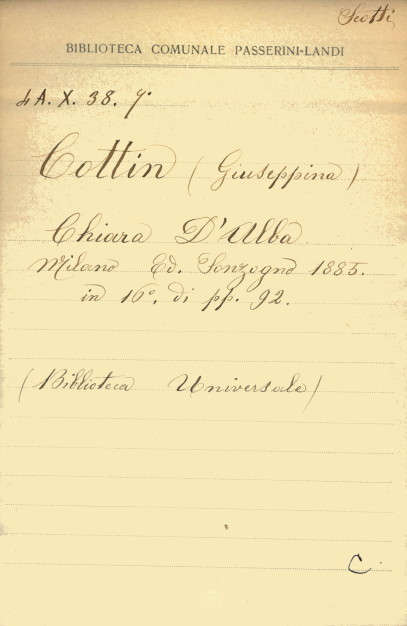 Scotti
BIBLIOTECA COMUNALE PASSERINI-LANDI
4 A. X. 38. 9°
Cottin (Giuseppina)
Chiara D'Alba
Milano Ed. Sonzogno 1885.
in 16°. di pp. 92.
(Biblioteca Universale)
C.